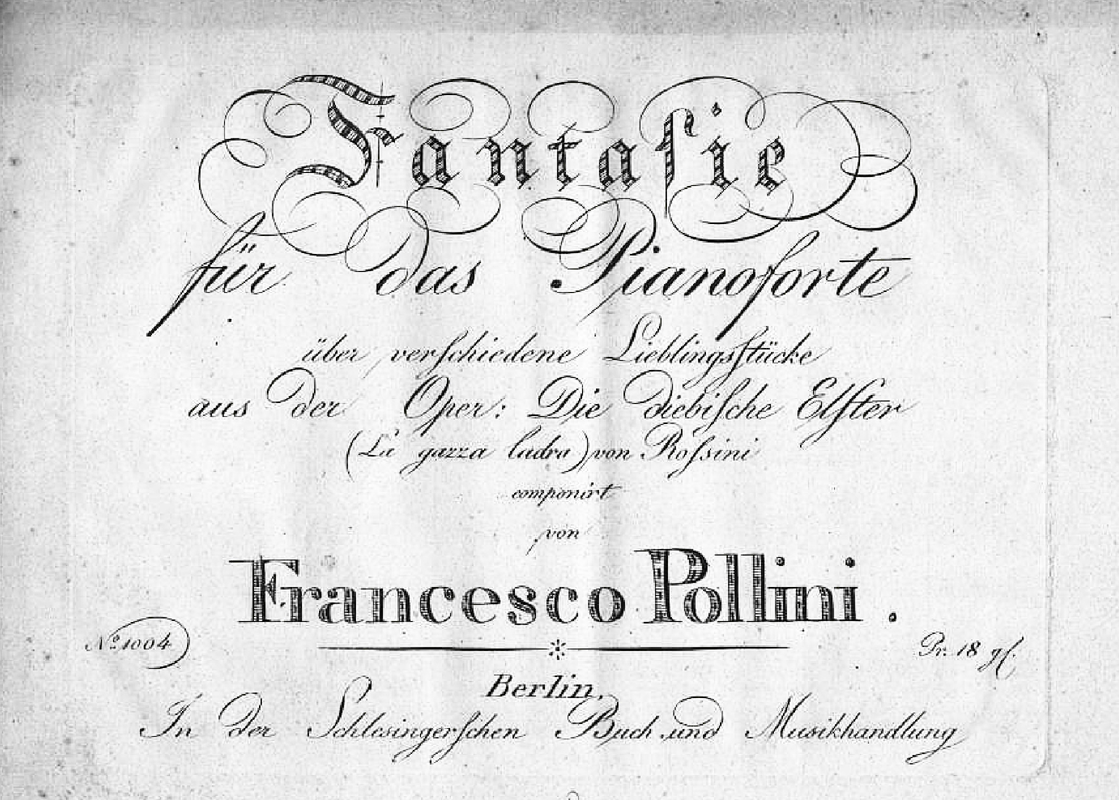 Fantasie
für das Pianoforte
über verschiedene Lieblingsstücke
aus der Oper: Die diebische Elster
(La gazza ladra) von Rossini
componirt
von
Francesco Pollini.
No. 1004
Pr. 18 gſ.
Berlin,
In der Schlesingerschen Buch und Musikhandlung